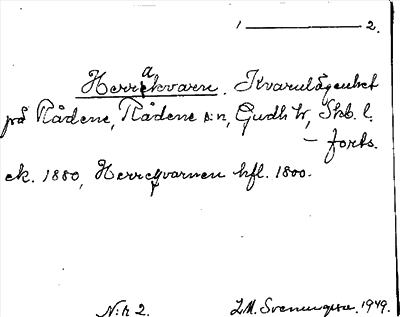 1 ———— 2.
Herrakvarn. Kvarnlägenhet
på Rådene, Rådene sn, Gudh hr, Skb. l.
– forts.
ek. 1880, Herreqvarnen hfl. 1800.
N:r 2. 1949.